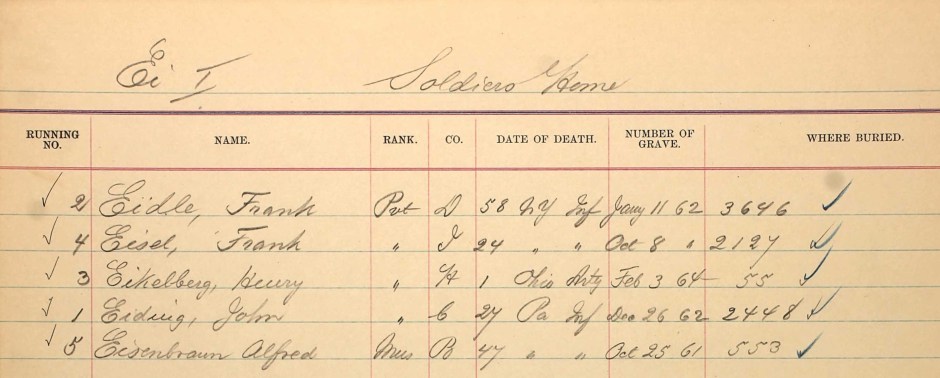 Ei I Soldiers Home
RUNNING NO. NAME. RANK. CO. DATE OF DEATH. NUMBER OF GRAVE. WHERE BURIED.
2 Eidle, Frank Pvt D 58 NY Inf Jany 11 62 3646
4 Eisel, Frank " I 24 " " Oct 8 " 2127
3 Eikelberg, Henry " H 1 Ohio Arty Feb 3 64 55
1 Eiding, John " C 27 Pa Inf Dec 26 62 2448
5 Eisenbraun Alfred Mus B 47 " " Oct 25 61 553